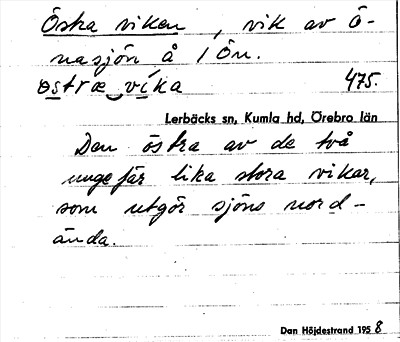 Östra viken, vik av Ö-
nasjön å 1 Ön.
östræ‿víka 475.
Lerbäcks sn, Kumla hd, Örebro län
Den östra av de två
ungefär lika stora vikar,
som utgör sjöns nord-
ända.
Dan Höjdestrand 1958